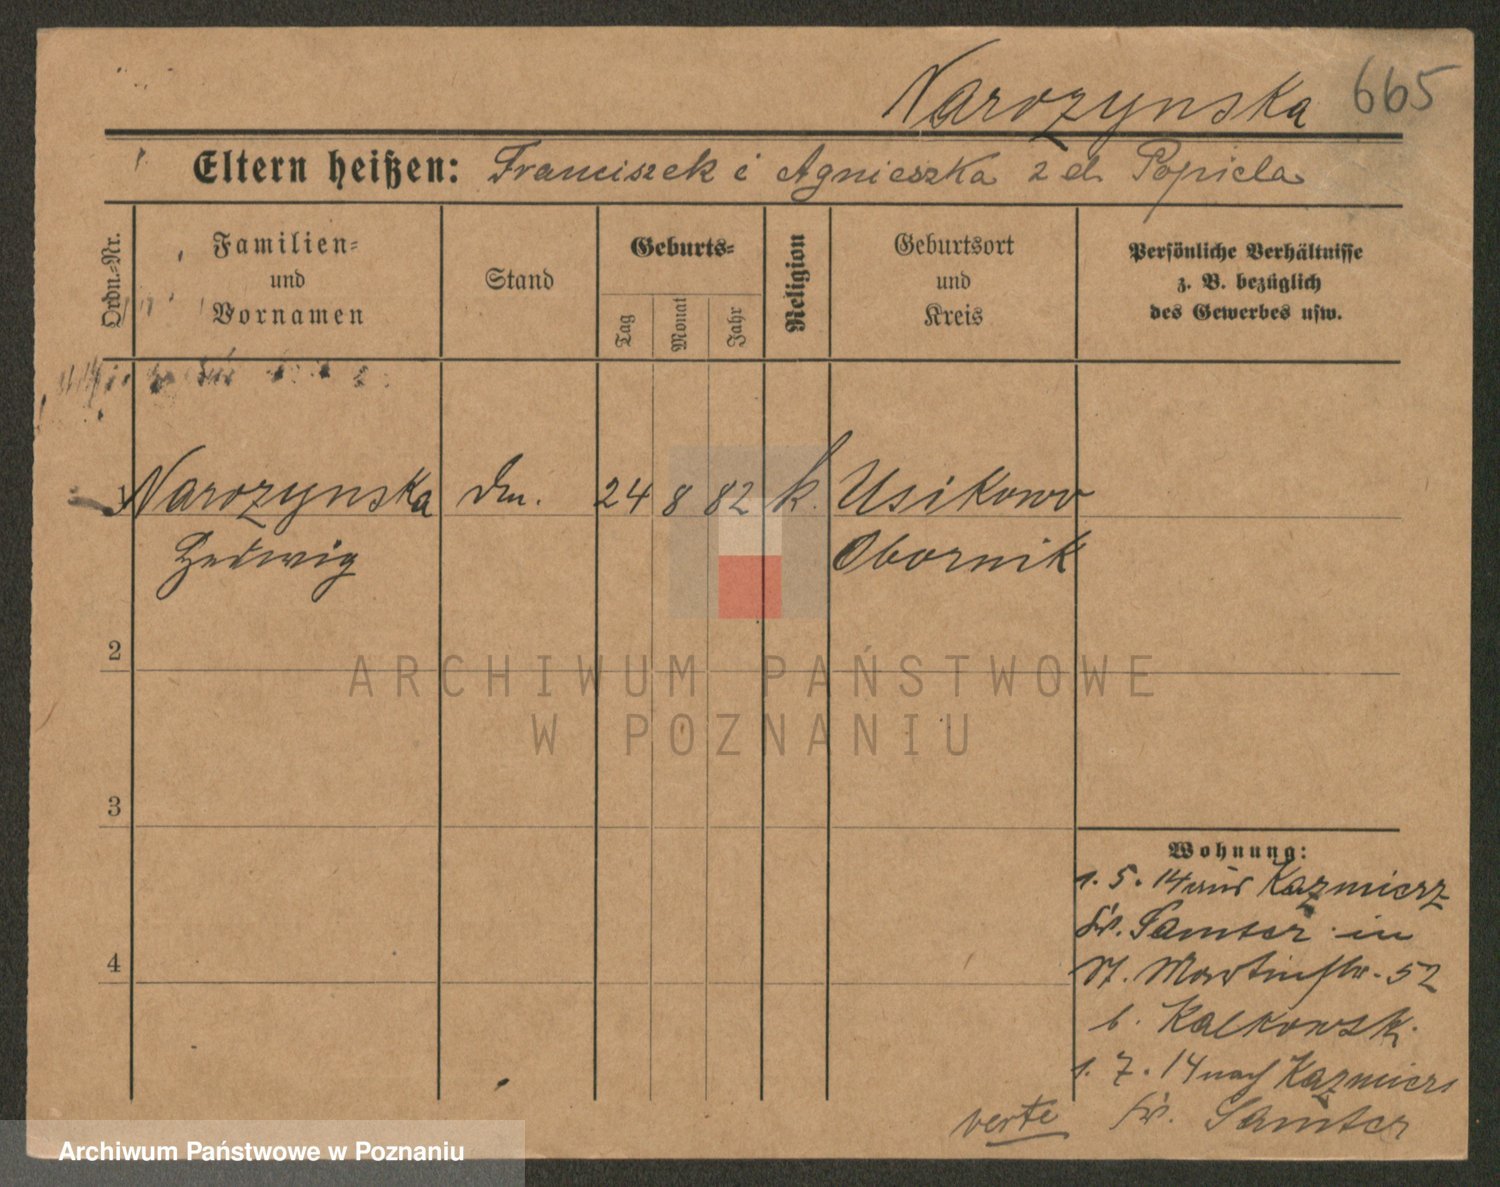 Narozynska 665
Eltern heißen: Franciszek i Agnieszka z d. Popiela
Ordn.-Nr.
Familien-
und
Vornamen
Stand
Geburts-
Tag
Monat
Jahr
Religion
Geburtsort
und
Kreis
Persönliche Verhältnisse
z. B. bezüglich
des Gewerbes usw.
1 Narozynska 24 8 82 k. Usikowo
Hedwig Obornik
2
3
4
Wohnung:
1. 5. 14 aus Kazmierz
Kr. Samter in
St. Martinstr. 52
b. Kalkowski
1. 7. 14 nach Kazmierz
Kr. Samter
verte
ARCHIWUM PAŃSTWOWE
W POZNANIU
Archiwum Państwowe w Poznaniu